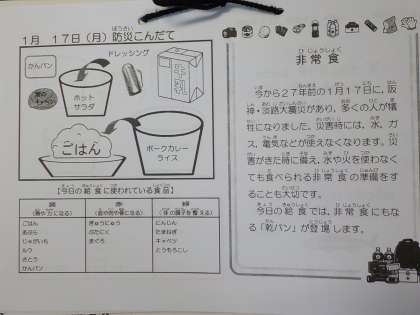 1月 17日(月)防災こんだて
ぼうさい
ドレッシング
かんパン
ホット
サラダ
ごはん
ポークカレー
ライス
【今日の給食に使われている食品】
黄
赤
緑
(熱や力になる)
(体の調子を整える)
ごはん
あぶら
じゃがいも
ルウ
さとう
かんパン
ぎゅうにゅう
ぶたにく
まぐろ
にんじん
たまねぎ
キャベツ
とうもろこし
ひじょうしょく
非常食
今から27年前の1月17日に、阪
神・淡路大震災があり、多くの人が犠
牲になりました。災害時には、水、ガ
ス、電気などが使えなくなります。災
害がきた時に備え、水や火を使わなく
ても食べられる非常食の準備をす
ることも大切です。
今日の給食では、非常食にもな
る「乾パン」が登場します。